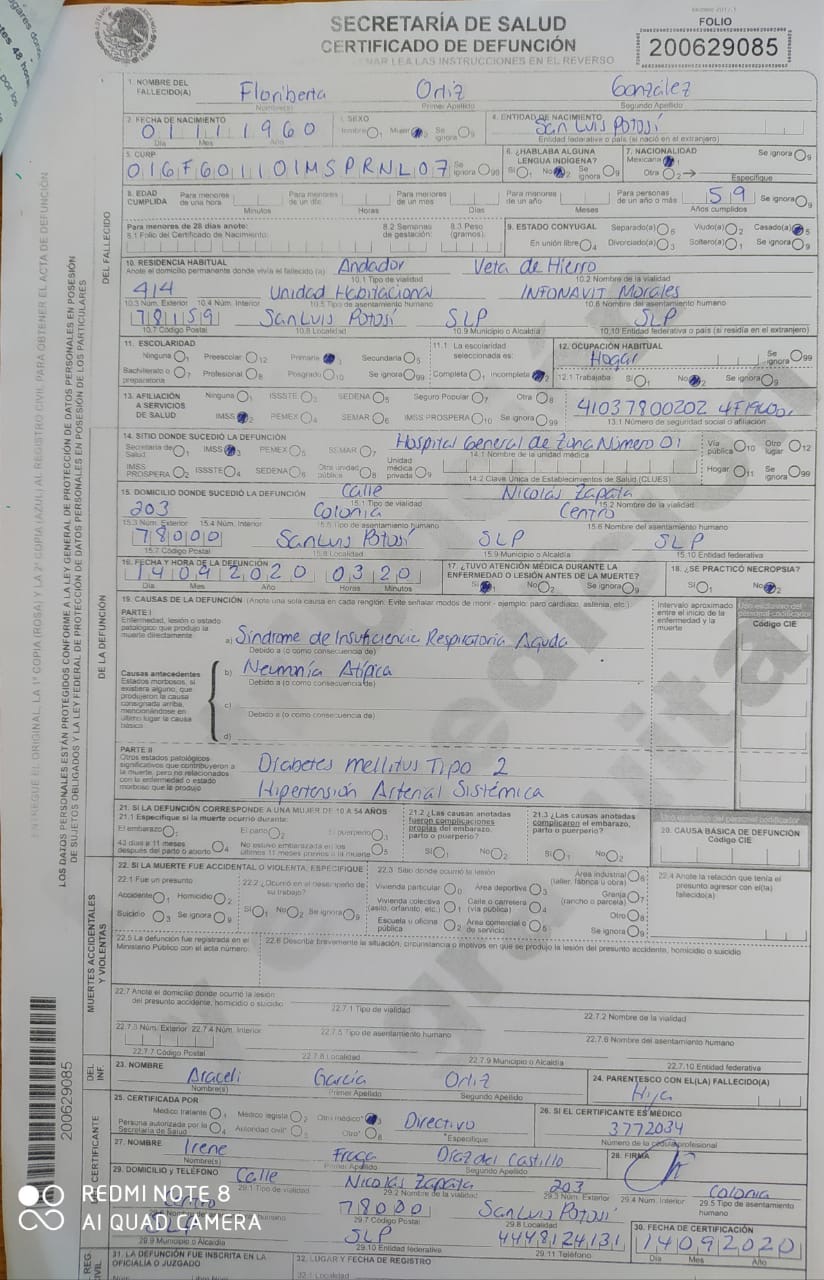 SECRETARÍA DE SALUD
CERTIFICADO DE DEFUNCIÓN
LEA LAS INSTRUCCIONES EN EL REVERSO
FOLIO
200629085
1. NOMBRE DEL FALLECIDO(A) Floriberta Ortiz González
Nombre(s) Primer Apellido Segundo Apellido
2. FECHA DE NACIMIENTO 01111960 3. SEXO Hombre 1 Mujer 2 Se ignora 9 4. ENTIDAD DE NACIMIENTO San Luis Potosí
Día Mes Año Entidad federativa o país (si nació en el extranjero)
5. CURP Se ignora 99 6. ¿HABLABA ALGUNA LENGUA INDÍGENA? Sí 1 No 2 Se ignora 9 7. NACIONALIDAD Mexicana 1 Otra 2 Especifique Se ignora 9
8. EDAD CUMPLIDA Para menores de una hora Minutos Para menores de un día Horas Para menores de un mes Días Para menores de un año Meses Para personas de un año o más 59 Años cumplidos Se ignora 9
Para menores de 28 días anote: 8.1 Folio del Certificado de Nacimiento: 8.2 Semanas de gestación: 8.3 Peso (gramos):
9. ESTADO CONYUGAL Separado(a) 6 Viudo(a) 2 Casado(a) 5 En unión libre 4 Divorciado(a) 3 Soltero(a) 1 Se ignora 9
10. RESIDENCIA HABITUAL
Anote el domicilio permanente donde vivía el fallecido (a) Andador Veta de Hierro
10.1 Tipo de vialidad 10.2 Nombre de la vialidad
414 Unidad Habitacional INFONAVIT Morales
10.3 Núm. Exterior 10.4 Núm. Interior 10.5 Tipo de asentamiento humano 10.6 Nombre del asentamiento humano
San Luis Potosí SLP SLP
10.7 Código Postal 10.8 Localidad 10.9 Municipio o Alcaldía 10.10 Entidad federativa o país (si residía en el extranjero)
11. ESCOLARIDAD Ninguna 1 Preescolar 12 Primaria Secundaria 5 Bachillerato o preparatoria 7 Profesional 8 Posgrado 10 Se ignora 99
11.1 La escolaridad seleccionada es: Completa 1 Incompleta 2
12. OCUPACIÓN HABITUAL Hogar Se ignora 99
12.1 Trabajaba Sí 1 No 2 Se ignora 9
13. AFILIACIÓN A SERVICIOS DE SALUD Ninguna 1 ISSSTE 3 SEDENA 5 Seguro Popular 7 Otra 8 IMSS 2 PEMEX 4 SEMAR 6 IMSS PROSPERA 10 Se ignora 99
13.1 Número de seguridad social o afiliación
14. SITIO DONDE SUCEDIÓ LA DEFUNCIÓN Hospital General de Zona Número 01
Secretaría de Salud 1 IMSS 3 PEMEX 5 SEMAR 7 14.1 Nombre de la unidad médica Vía pública 10 Otro lugar 12
IMSS PROSPERA 2 ISSSTE 4 SEDENA 6 Otra unidad pública 8 Unidad médica privada 9 14.2 Clave Única de Establecimientos de Salud (CLUES) Hogar 11 Se ignora 99
15. DOMICILIO DONDE SUCEDIÓ LA DEFUNCIÓN Calle Nicolás Zapata
15.1 Tipo de vialidad 15.2 Nombre de la vialidad
203 Colonia Centro
15.3 Núm. Exterior 15.4 Núm. Interior 15.5 Tipo de asentamiento humano 15.6 Nombre del asentamiento humano
78000 San Luis Potosí SLP SLP
15.7 Código Postal 15.8 Localidad 15.9 Municipio o Alcaldía 15.10 Entidad federativa
16. FECHA Y HORA DE LA DEFUNCIÓN 14092020 0320
Día Mes Año Horas Minutos
17. ¿TUVO ATENCIÓN MÉDICA DURANTE LA ENFERMEDAD O LESIÓN ANTES DE LA MUERTE? Sí 1 No 2 Se ignora 9
18. ¿SE PRACTICÓ NECROPSIA? Sí 1 No 2
19. CAUSAS DE LA DEFUNCIÓN (Anote una sola causa en cada renglón. Evite señalar modos de morir - ejemplo: paro cardiaco, astenia, etc.)
Intervalo aproximado entre el inicio de la enfermedad y la muerte
Uso exclusivo del personal codificador
Código CIE
PARTE I
Enfermedad, lesión o estado patológico que produjo la muerte directamente
a) Síndrome de Insuficiencia Respiratoria Aguda
Debido a (o como consecuencia de)
Causas antecedentes
Estados morbosos, si existiera alguno, que produjeron la causa consignada arriba, mencionándose en último lugar la causa básica
b) Neumonía Atípica
Debido a (o como consecuencia de)
c)
Debido a (o como consecuencia de)
d)
PARTE II
Otros estados patológicos significativos que contribuyeron a la muerte, pero no relacionados con la enfermedad o estado morboso que la produjo
Diabetes mellitus Tipo 2
Hipertensión Arterial Sistémica
21. SI LA DEFUNCIÓN CORRESPONDE A UNA MUJER DE 10 A 54 AÑOS
21.1 Especifique si la muerte ocurrió durante:
El embarazo 1 El parto 2 El puerperio 3
43 días a 11 meses después del parto o aborto 4 No estuvo embarazada en los últimos 11 meses previos a la muerte 5
21.2 ¿Las causas anotadas fueron complicaciones propias del embarazo, parto o puerperio? Sí 1 No 2
21.3 ¿Las causas anotadas complicaron el embarazo, parto o puerperio? Sí 1 No 2
Uso exclusivo del personal codificador
20. CAUSA BÁSICA DE DEFUNCIÓN
Código CIE
22. SI LA MUERTE FUE ACCIDENTAL O VIOLENTA, ESPECIFIQUE
22.1 Fue un presunto Accidente 1 Homicidio 2 Suicidio 3 Se ignora 9
22.2 ¿Ocurrió en el desempeño de su trabajo? Sí 1 No 2 Se ignora 9
22.3 Sitio donde ocurrió la lesión
Vivienda particular 0 Área deportiva 3 Área industrial (taller, fábrica u obra) 6
Vivienda colectiva (asilo, orfanato, etc.) 1 Calle o carretera (vía pública) 4 Granja (rancho o parcela) 7
Escuela u oficina pública 2 Área comercial o de servicio 5 Otro 8 Se ignora 9
22.4 Anote la relación que tenía el presunto agresor con el(la) fallecido(a)
22.5 La defunción fue registrada en el Ministerio Público con el acta número:
22.6 Describa brevemente la situación, circunstancia o motivos en que se produjo la lesión del presunto accidente, homicidio o suicidio
22.7 Anote el domicilio donde ocurrió la lesión del presunto accidente, homicidio o suicidio
22.7.1 Tipo de vialidad 22.7.2 Nombre de la vialidad
22.7.3 Núm. Exterior 22.7.4 Núm. Interior 22.7.5 Tipo de asentamiento humano 22.7.6 Nombre del asentamiento humano
22.7.7 Código Postal 22.7.8 Localidad 22.7.9 Municipio o Alcaldía 22.7.10 Entidad federativa
23. NOMBRE Araceli García Ortiz
Nombre(s) Primer Apellido Segundo Apellido
24. PARENTESCO CON EL(LA) FALLECIDO(A) Hija
25. CERTIFICADA POR Médico tratante 1 Médico legista 2 Otro médico* 3 Directivo
Persona autorizada por la Secretaría de Salud 4 Autoridad civil* Otro* 8 *Especifique
26. SI EL CERTIFICANTE ES MÉDICO
3772034
Número de la cédula profesional
27. NOMBRE Irene Fraga Díaz del Castillo
Nombre(s) Primer Apellido Segundo Apellido
28. FIRMA
29. DOMICILIO Y TELÉFONO Calle Nicolás Zapata 203 Colonia
29.1 Tipo de vialidad 29.2 Nombre de la vialidad 29.3 Núm. Exterior 29.4 Núm. Interior 29.5 Tipo de asentamiento humano
Centro 78000 San Luis Potosí
29.7 Código Postal 29.8 Localidad
SLP SLP 4448124131
29.9 Municipio o Alcaldía 29.10 Entidad federativa 29.11 Teléfono
30. FECHA DE CERTIFICACIÓN
14092020
Día Mes Año
31. LA DEFUNCIÓN FUE INSCRITA EN LA OFICIALÍA O JUZGADO
32. LUGAR Y FECHA DE REGISTRO
32.1 Localidad
DEL FALLECIDO
DE LA DEFUNCIÓN
MUERTES ACCIDENTALES Y VIOLENTAS
DEL INF.
CERTIFICANTE
REG. CIVIL
LOS DATOS PERSONALES ESTÁN PROTEGIDOS CONFORME A LA LEY GENERAL DE PROTECCIÓN DE DATOS PERSONALES EN POSESIÓN DE SUJETOS OBLIGADOS Y LA LEY FEDERAL DE PROTECCIÓN DE DATOS PERSONALES EN POSESIÓN DE LOS PARTICULARES
ENTREGUE EL ORIGINAL, LA 1ª COPIA (ROSA) Y LA 2ª COPIA (AZUL) AL REGISTRO CIVIL PARA OBTENER EL ACTA DE DEFUNCIÓN
200629085
REDMI NOTE 8
AI QUAD CAMERA